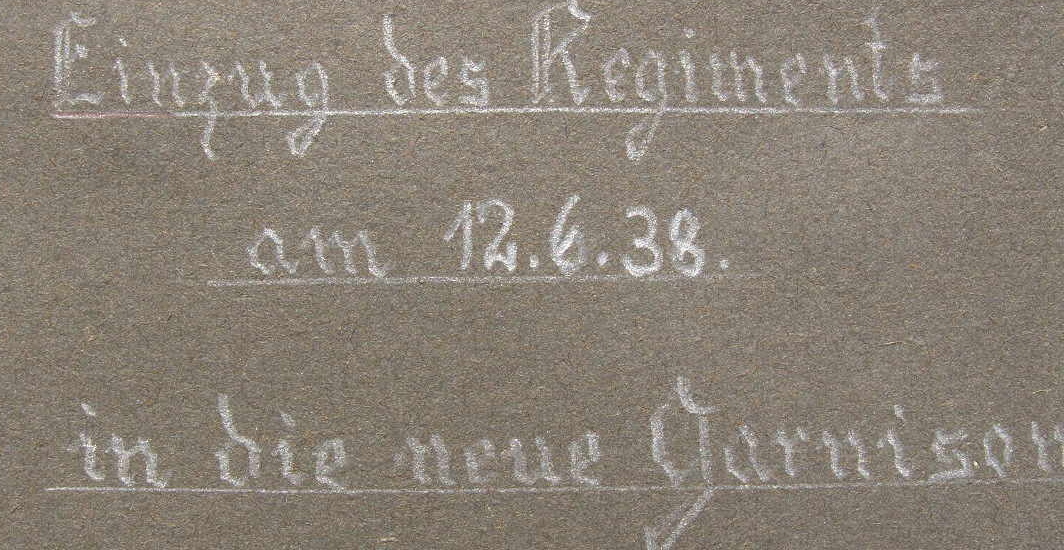 Einzug des Regiments
am 12.6.38.
in die neue Garnison